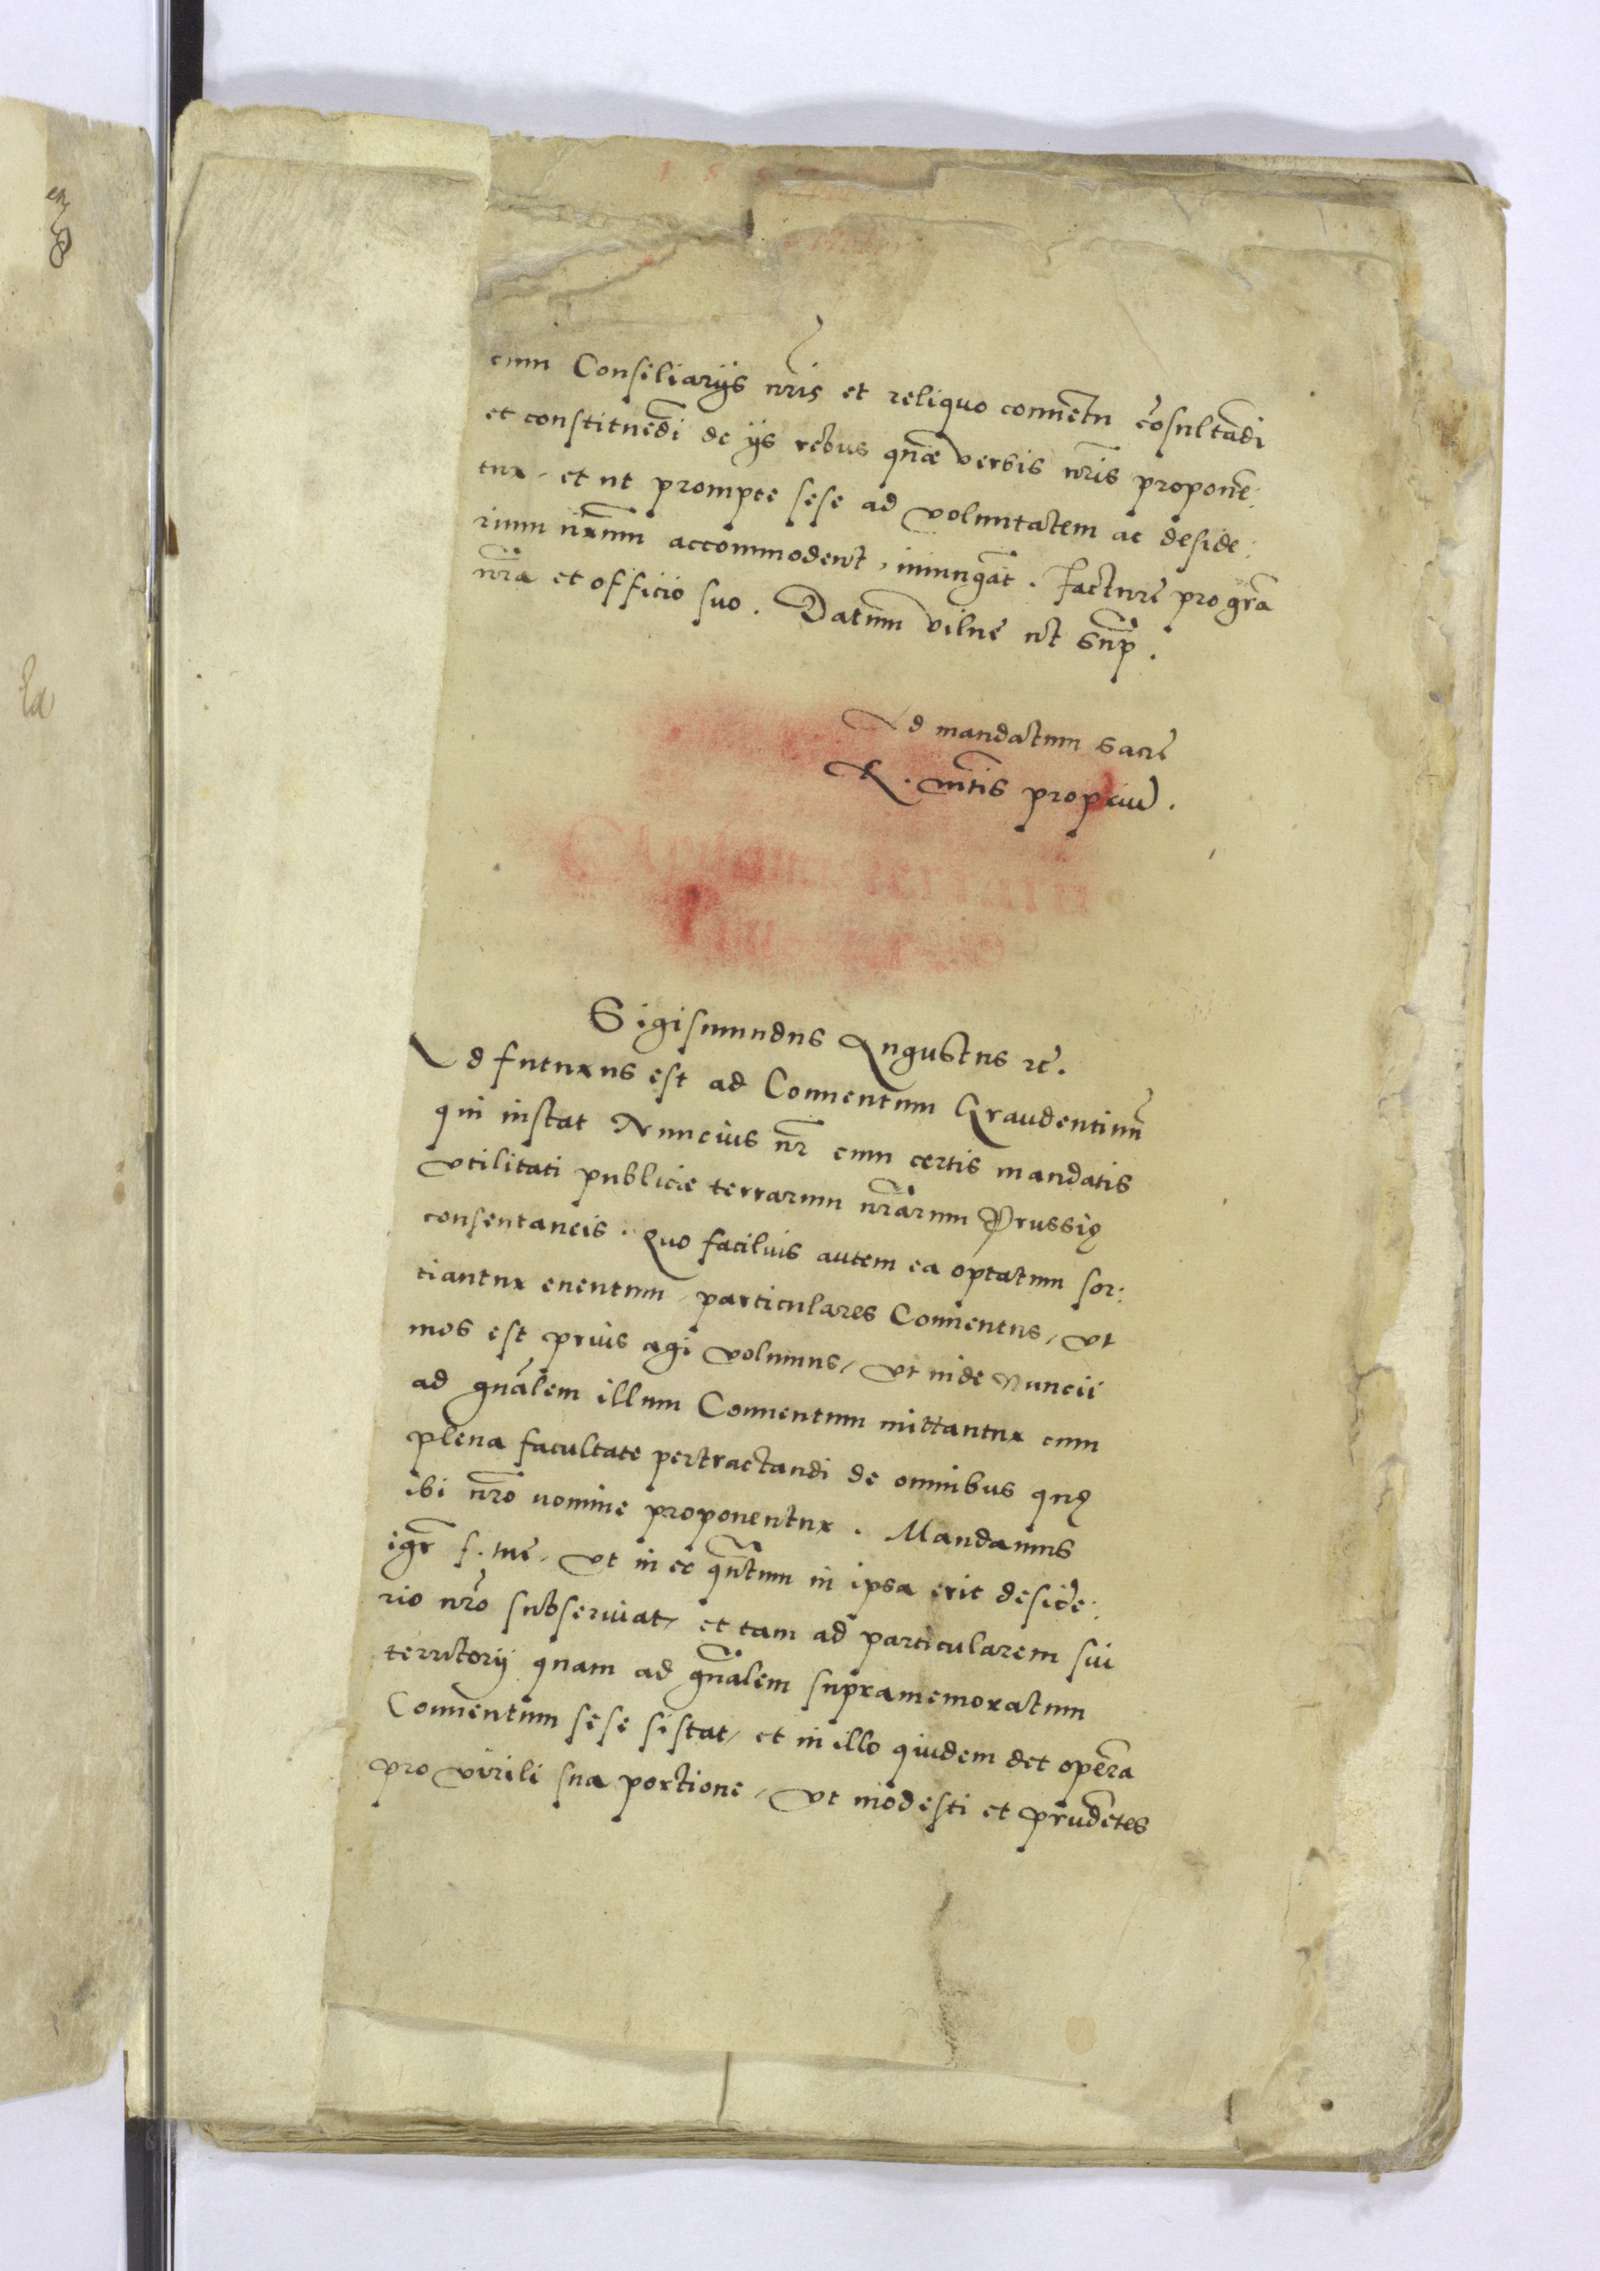 cum Consiliarijs nr̃is et reliquo conuẽtu cõsultãdi
et constituẽdi de ijs rebus quæ verbis nr̃is proponẽ:
tur, et ut prompte sese ad voluntatem ac deside:
rium nr̃um accommodent, iniungãt. Facturẽ pro gr̃a
nr̃a et officio suo. Datum vilnẽ ut sup̃.
Ad mandatum sacrẽ
R. mt̃is propriũ.
Sigismundus Augustus ꝛc̃.
Ad futurus est ad Conuentum Graudentinũ
qui instat Nuncius nr̃ cum certis mandatis
vtilitati publicæ terrarum nr̃arum Prussię
consentaneis. Quo facilius autem ea optatum sor:
tiantur euentum, particulares Conuentus, vt
mos est prius agi volumus, vt inde Nuncii
ad gnãlem illum Conuentum mittantur cum
plena facultate pertractandi de omnibus quę
ibi nr̃o nomine proponentur. Mandamus
igr̃ s. tuẽ, vt in ec quãtum in ipsa erit desidẽ:
rio nr̃o subseruiat, et tam ad particularem sui
territorij quam ad gnãlem supramemoratum
Conuentum sese sistat, et in illo quidem det operã
pro virili sua portione, vt modesti et prudẽtes